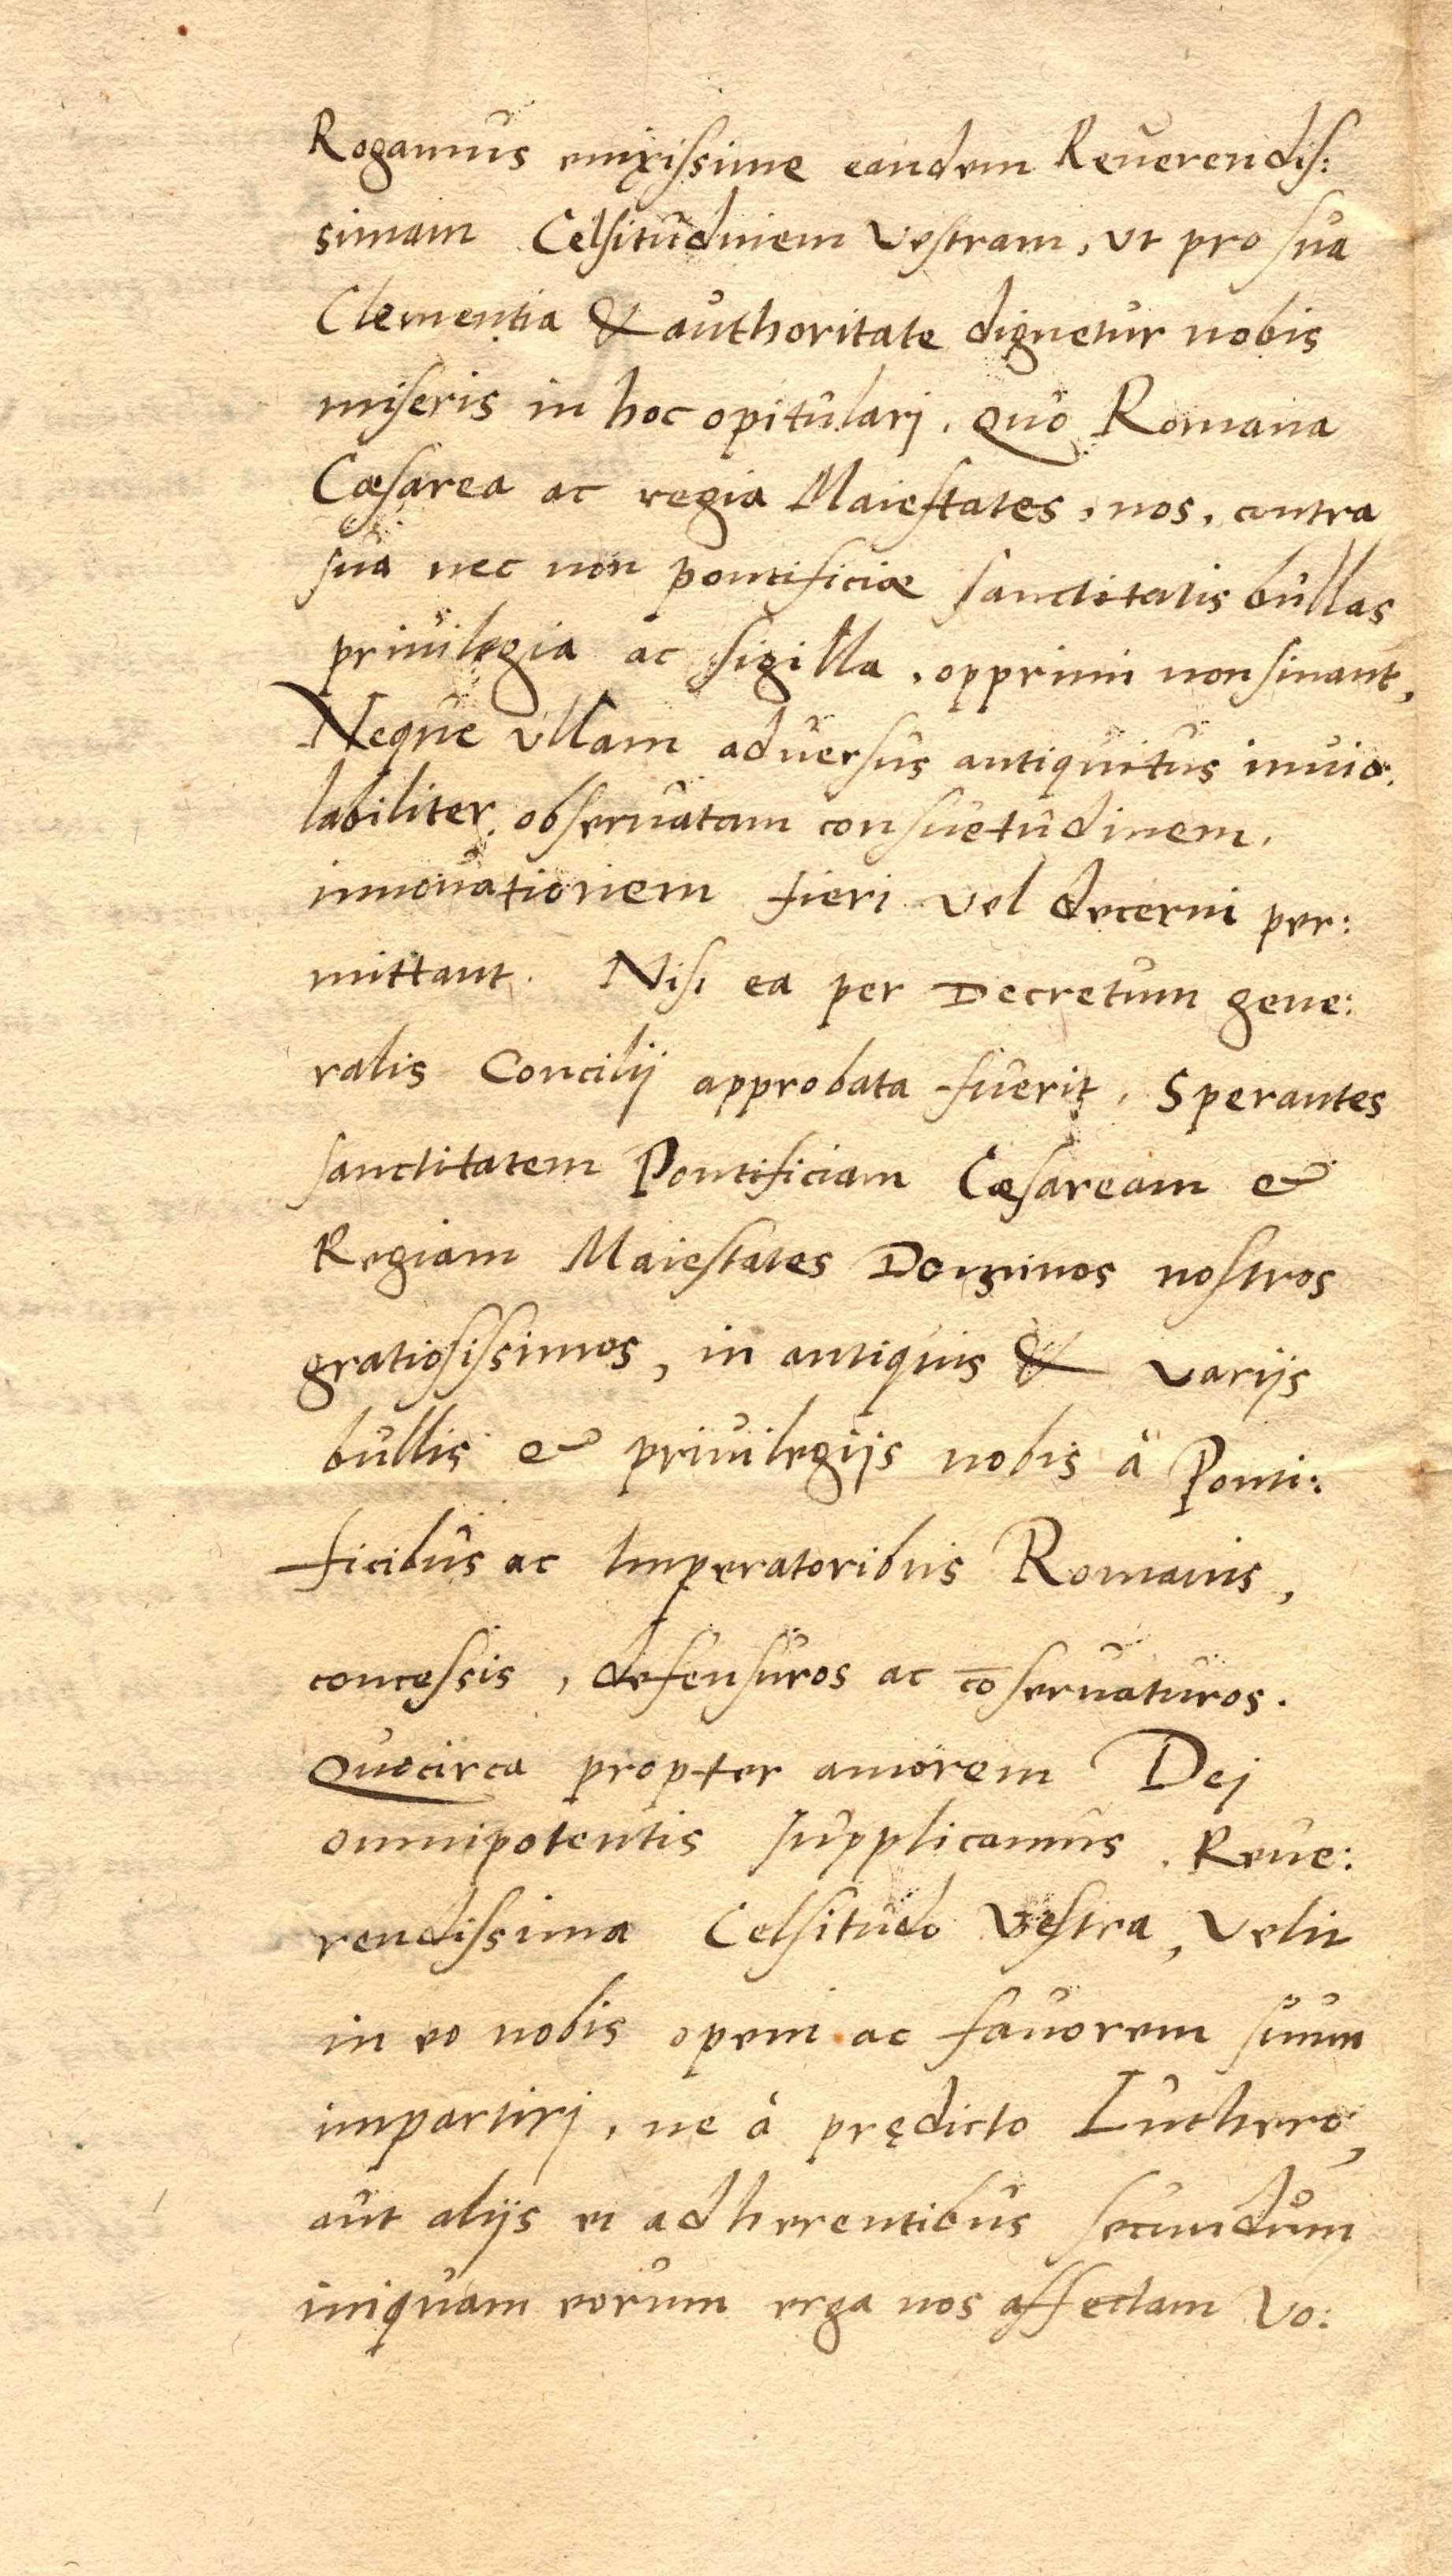 Rogamus enixissime eandem Reuerendis:
simam Celsitudinem Vestram, vt pro sua
Clementia & authoritate dignetur nobis
miseris in hoc opitularj. quo Romana
Cæsarea ac regia Maiestates, nos, contra
sua nec non pontificiæ sanctitatis bullas
priuilegia ac sigilla, opprimi non sinant,
Neque vllam aduersus antiquitus inuio:
labiliter obseruatam consuetudinem,
innouationem fieri vel decerni per:
mittant. Nisi ea per Decretum gene:
ralis Concilij approbata fuerit, Sperantes
sanctitatem Pontificiam Cæsaream &
Regiam Maiestates Dominos nostros
gratiosissimos, in antiquis & varijs
bullis & priuilegijs nobis à Ponti:
ficibus ac Imperatoribus Romanis,
concessis, defensuros ac cōseruaturos.
Quocirca propter amorem Dej
omnipotentis supplicamus. Reue:
rendissima Celsitudo Vestra, velit
in eo nobis opem ac fauorem suum
impartirj, ne à prędicto Luthero,
aut alijs ei adherentibus secundum
iniquam eorum erga nos affectam vo: